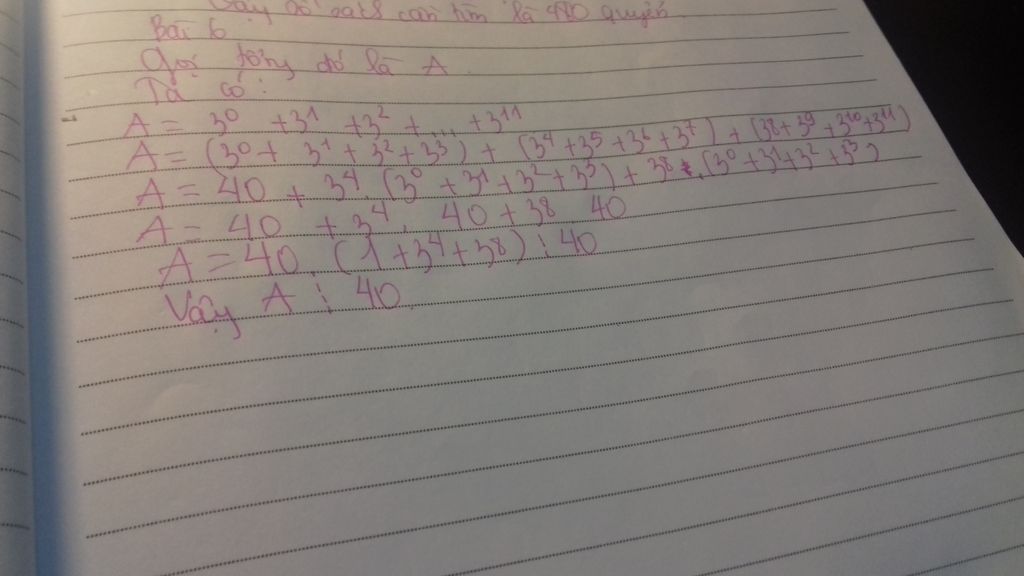 Vậy số sách cần tìm là 410 quyển
Bài 6
Gọi tổng đó là A
Ta có:
A = 3⁰ + 3¹ + 3² + ... + 3¹¹
A = (3⁰ + 3¹ + 3² + 3³) + (3⁴ + 3⁵ + 3⁶ + 3⁷) + (3⁸ + 3⁹ + 3¹⁰ + 3¹¹)
A = 40 + 3⁴. (3⁰ + 3¹ + 3² + 3³) + 3⁸ . (3⁰ + 3¹ + 3² + 3³)
A = 40 + 3⁴. 40 + 3⁸ 40
A = 40. (1 + 3⁴ + 3⁸) ⋮ 40
Vậy A ⋮ 40.